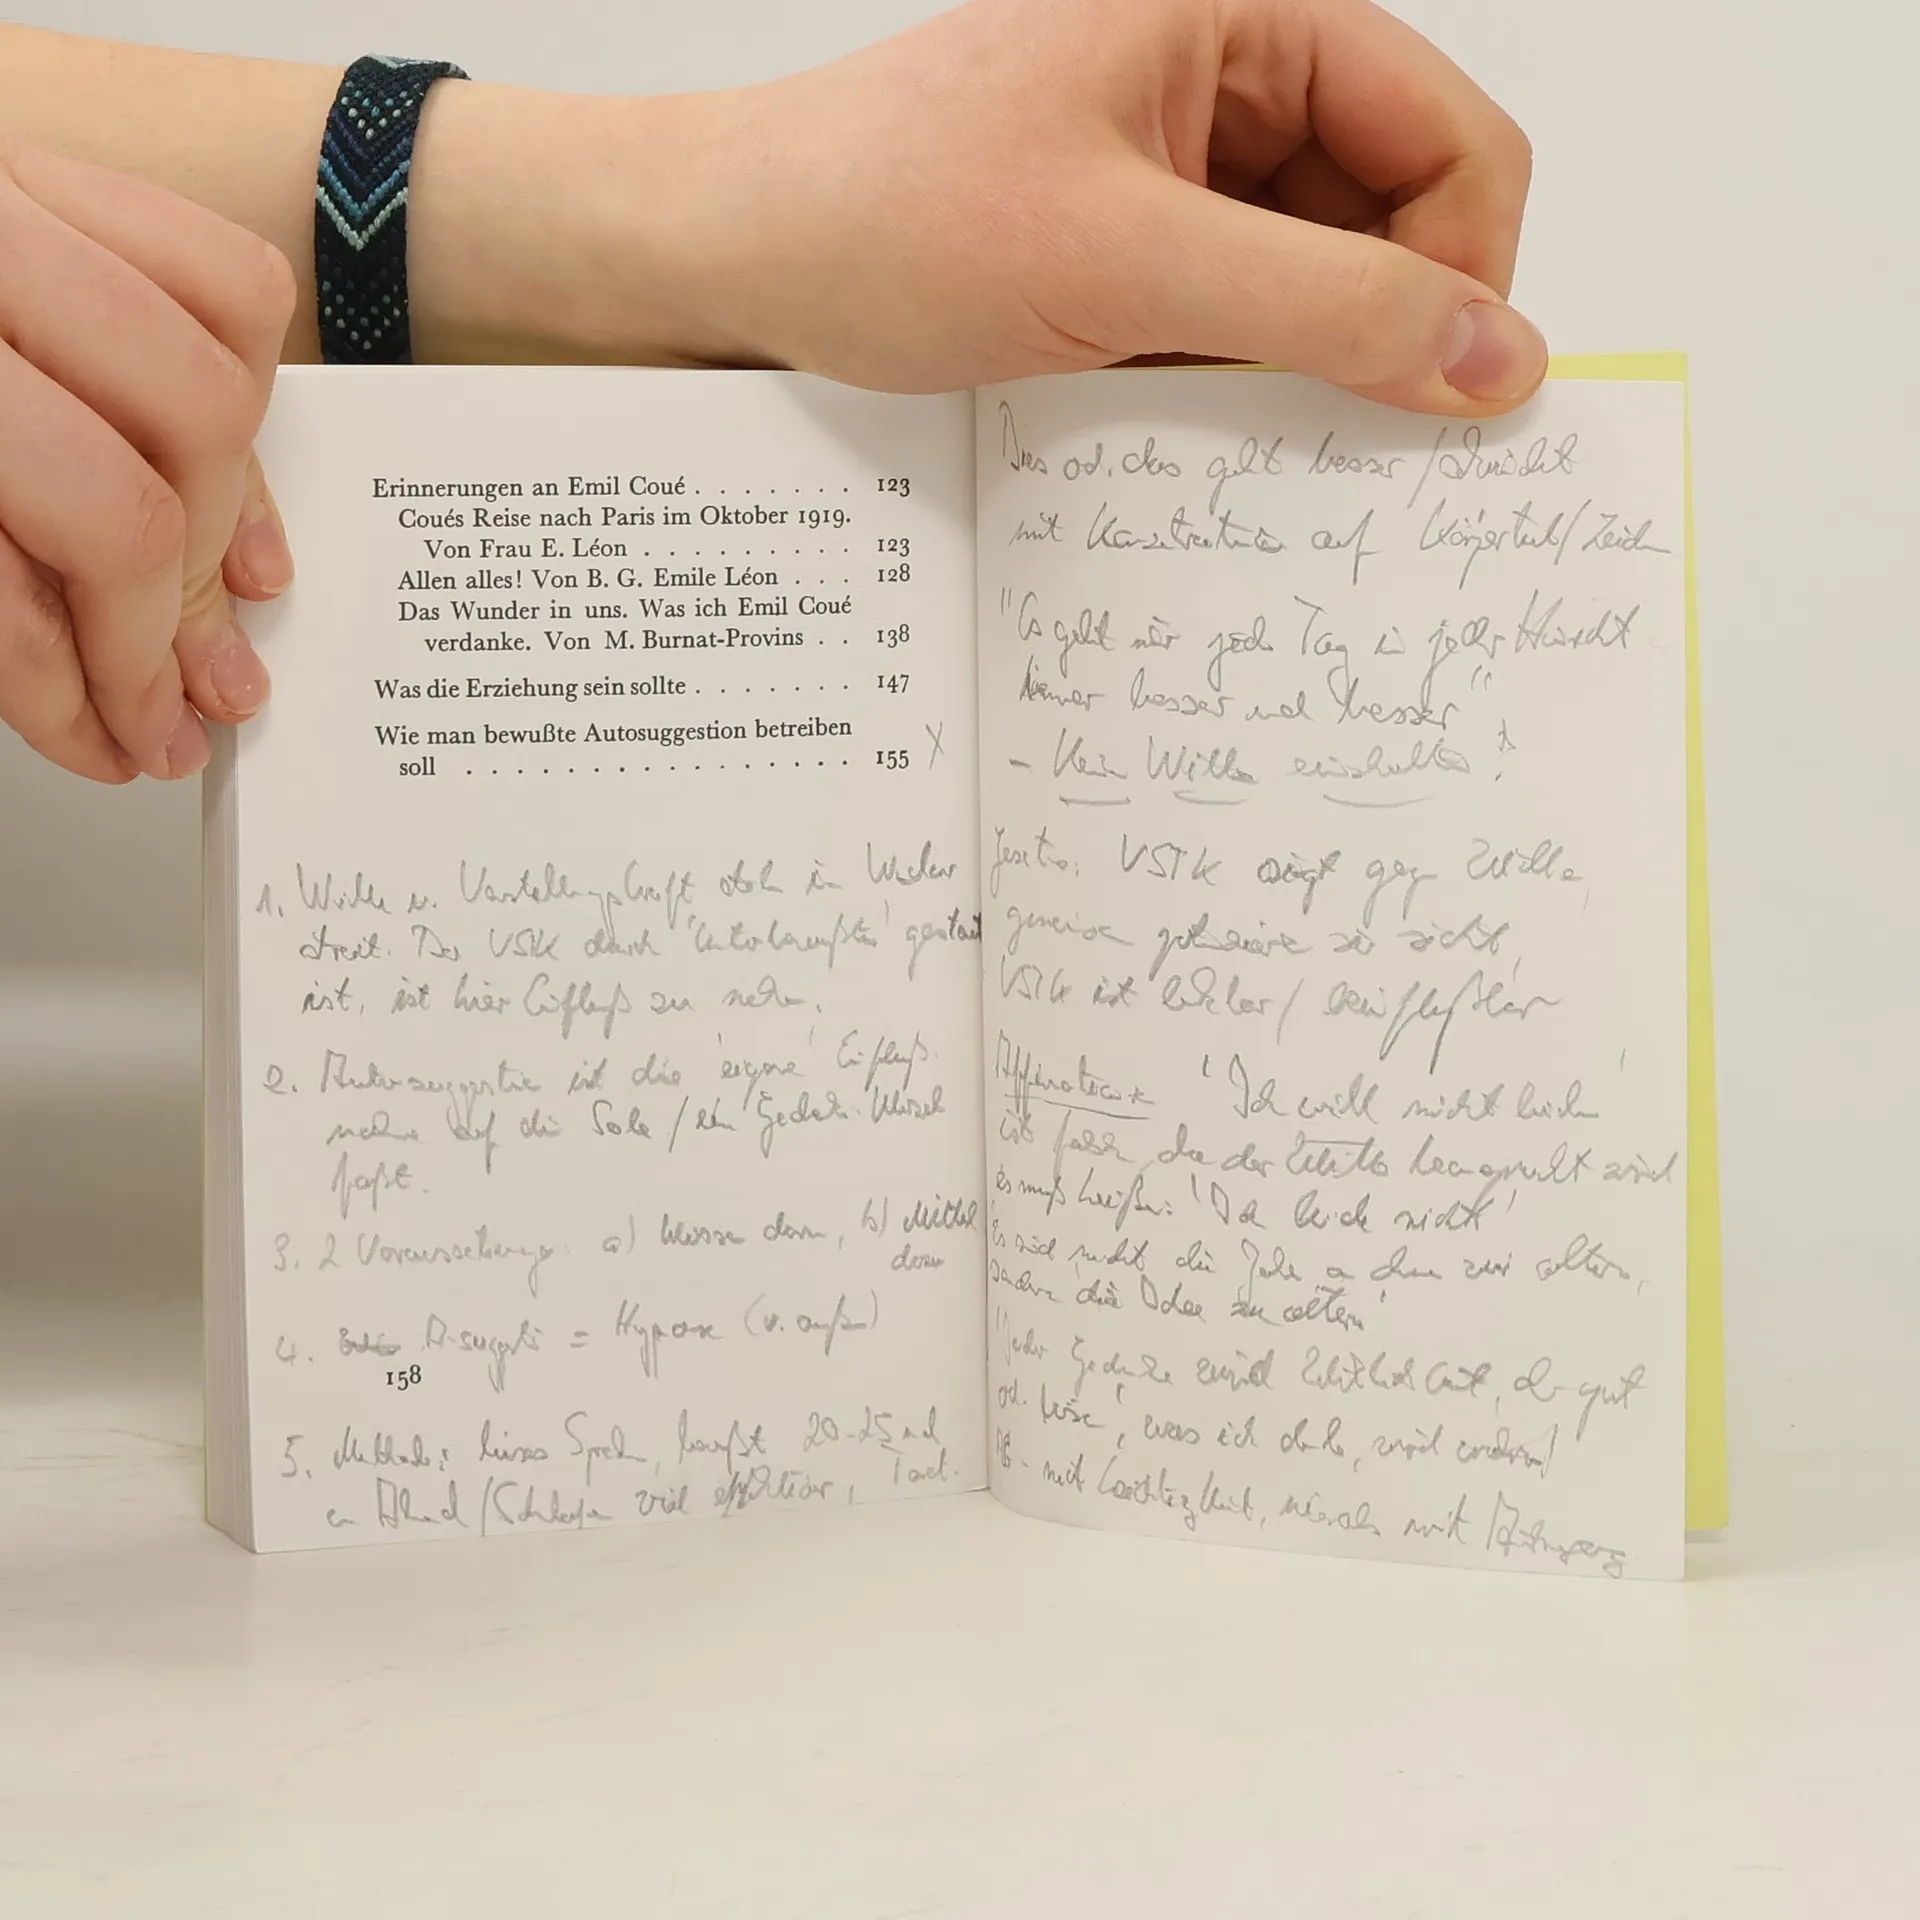 Erinnerungen an Emil Coué . . . . . . . 123
Coués Reise nach Paris im Oktober 1919.
Von Frau E. Léon . . . . . . . . . 123
Allen alles! Von B. G. Emile Léon . . . 128
Das Wunder in uns. Was ich Emil Coué
verdanke. Von M. Burnat-Provins . . 138
Was die Erziehung sein sollte . . . . . . . 147
Wie man bewußte Autosuggestion betreiben
soll . . . . . . . . . . . . . . . . . 155 X
1. Wille u. Vorstellungskraft in Wider
streit. Da VSTK durch gestaut
ist, ist hier Einfluß zu
2. Autosuggestion ist die 'eigene' Einfluß
nahme auf die / ein
faßt.
3. 2 Voraussetzunge: a) Wissen darum, b) Mittel
dazu
4. A-suggesti = Hypnose (v. außen)
158
5. Methode: leises Sprechen, 20-25 mal
am Abend / Schlafen viel effektiver,
Dies od. das geht besser /
mit Konzentration auf Körperteil/
"Es geht mir jeden Tag in jeder Hinsicht
immer besser und besser"
- Kein Wille einschalten!
VSTK siegt gegen Wille,
gemeinsam potenzieren sie sich,
VSTK ist lenkbar / beeinflußbar
Affirmation 'Ich will nicht leiden'
ist falsch da der Wille wird
es muß heißen: 'Ich leide nicht'
Es sind nicht die Jahre an denen wir altern,
sondern die Idee zu altern'
'Jeder Gedanke wird Wirklichkeit, ob gut
od. böse', was ich denke, wird
- mit Leichtigkeit, niemals mit Anstrengung